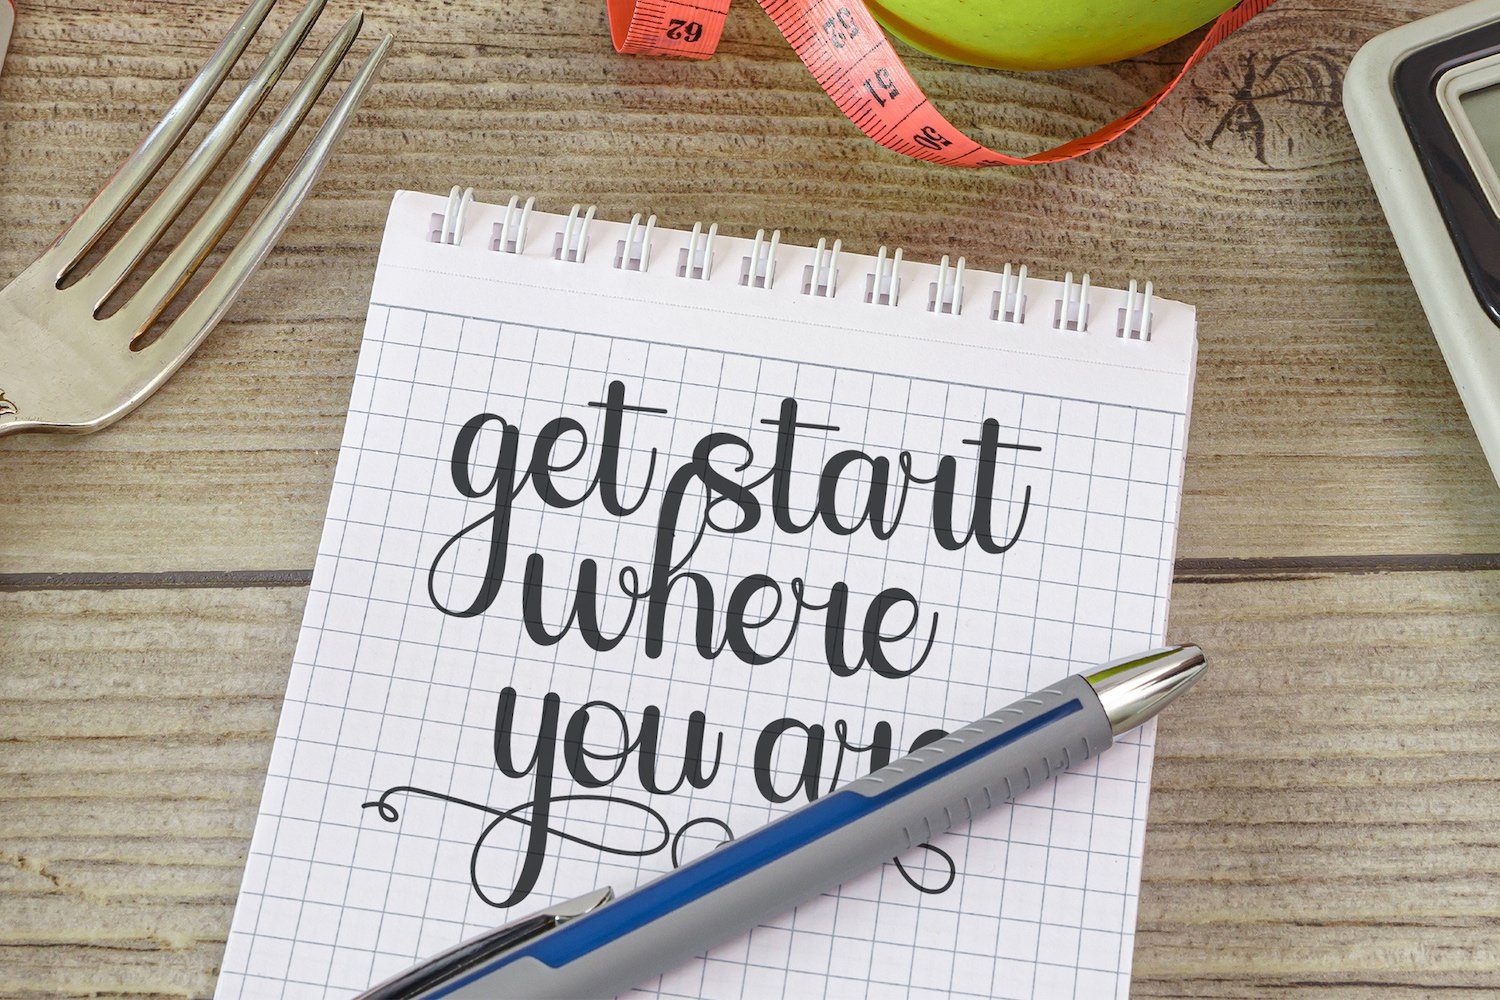 62
52
51
50
get start
where
you are